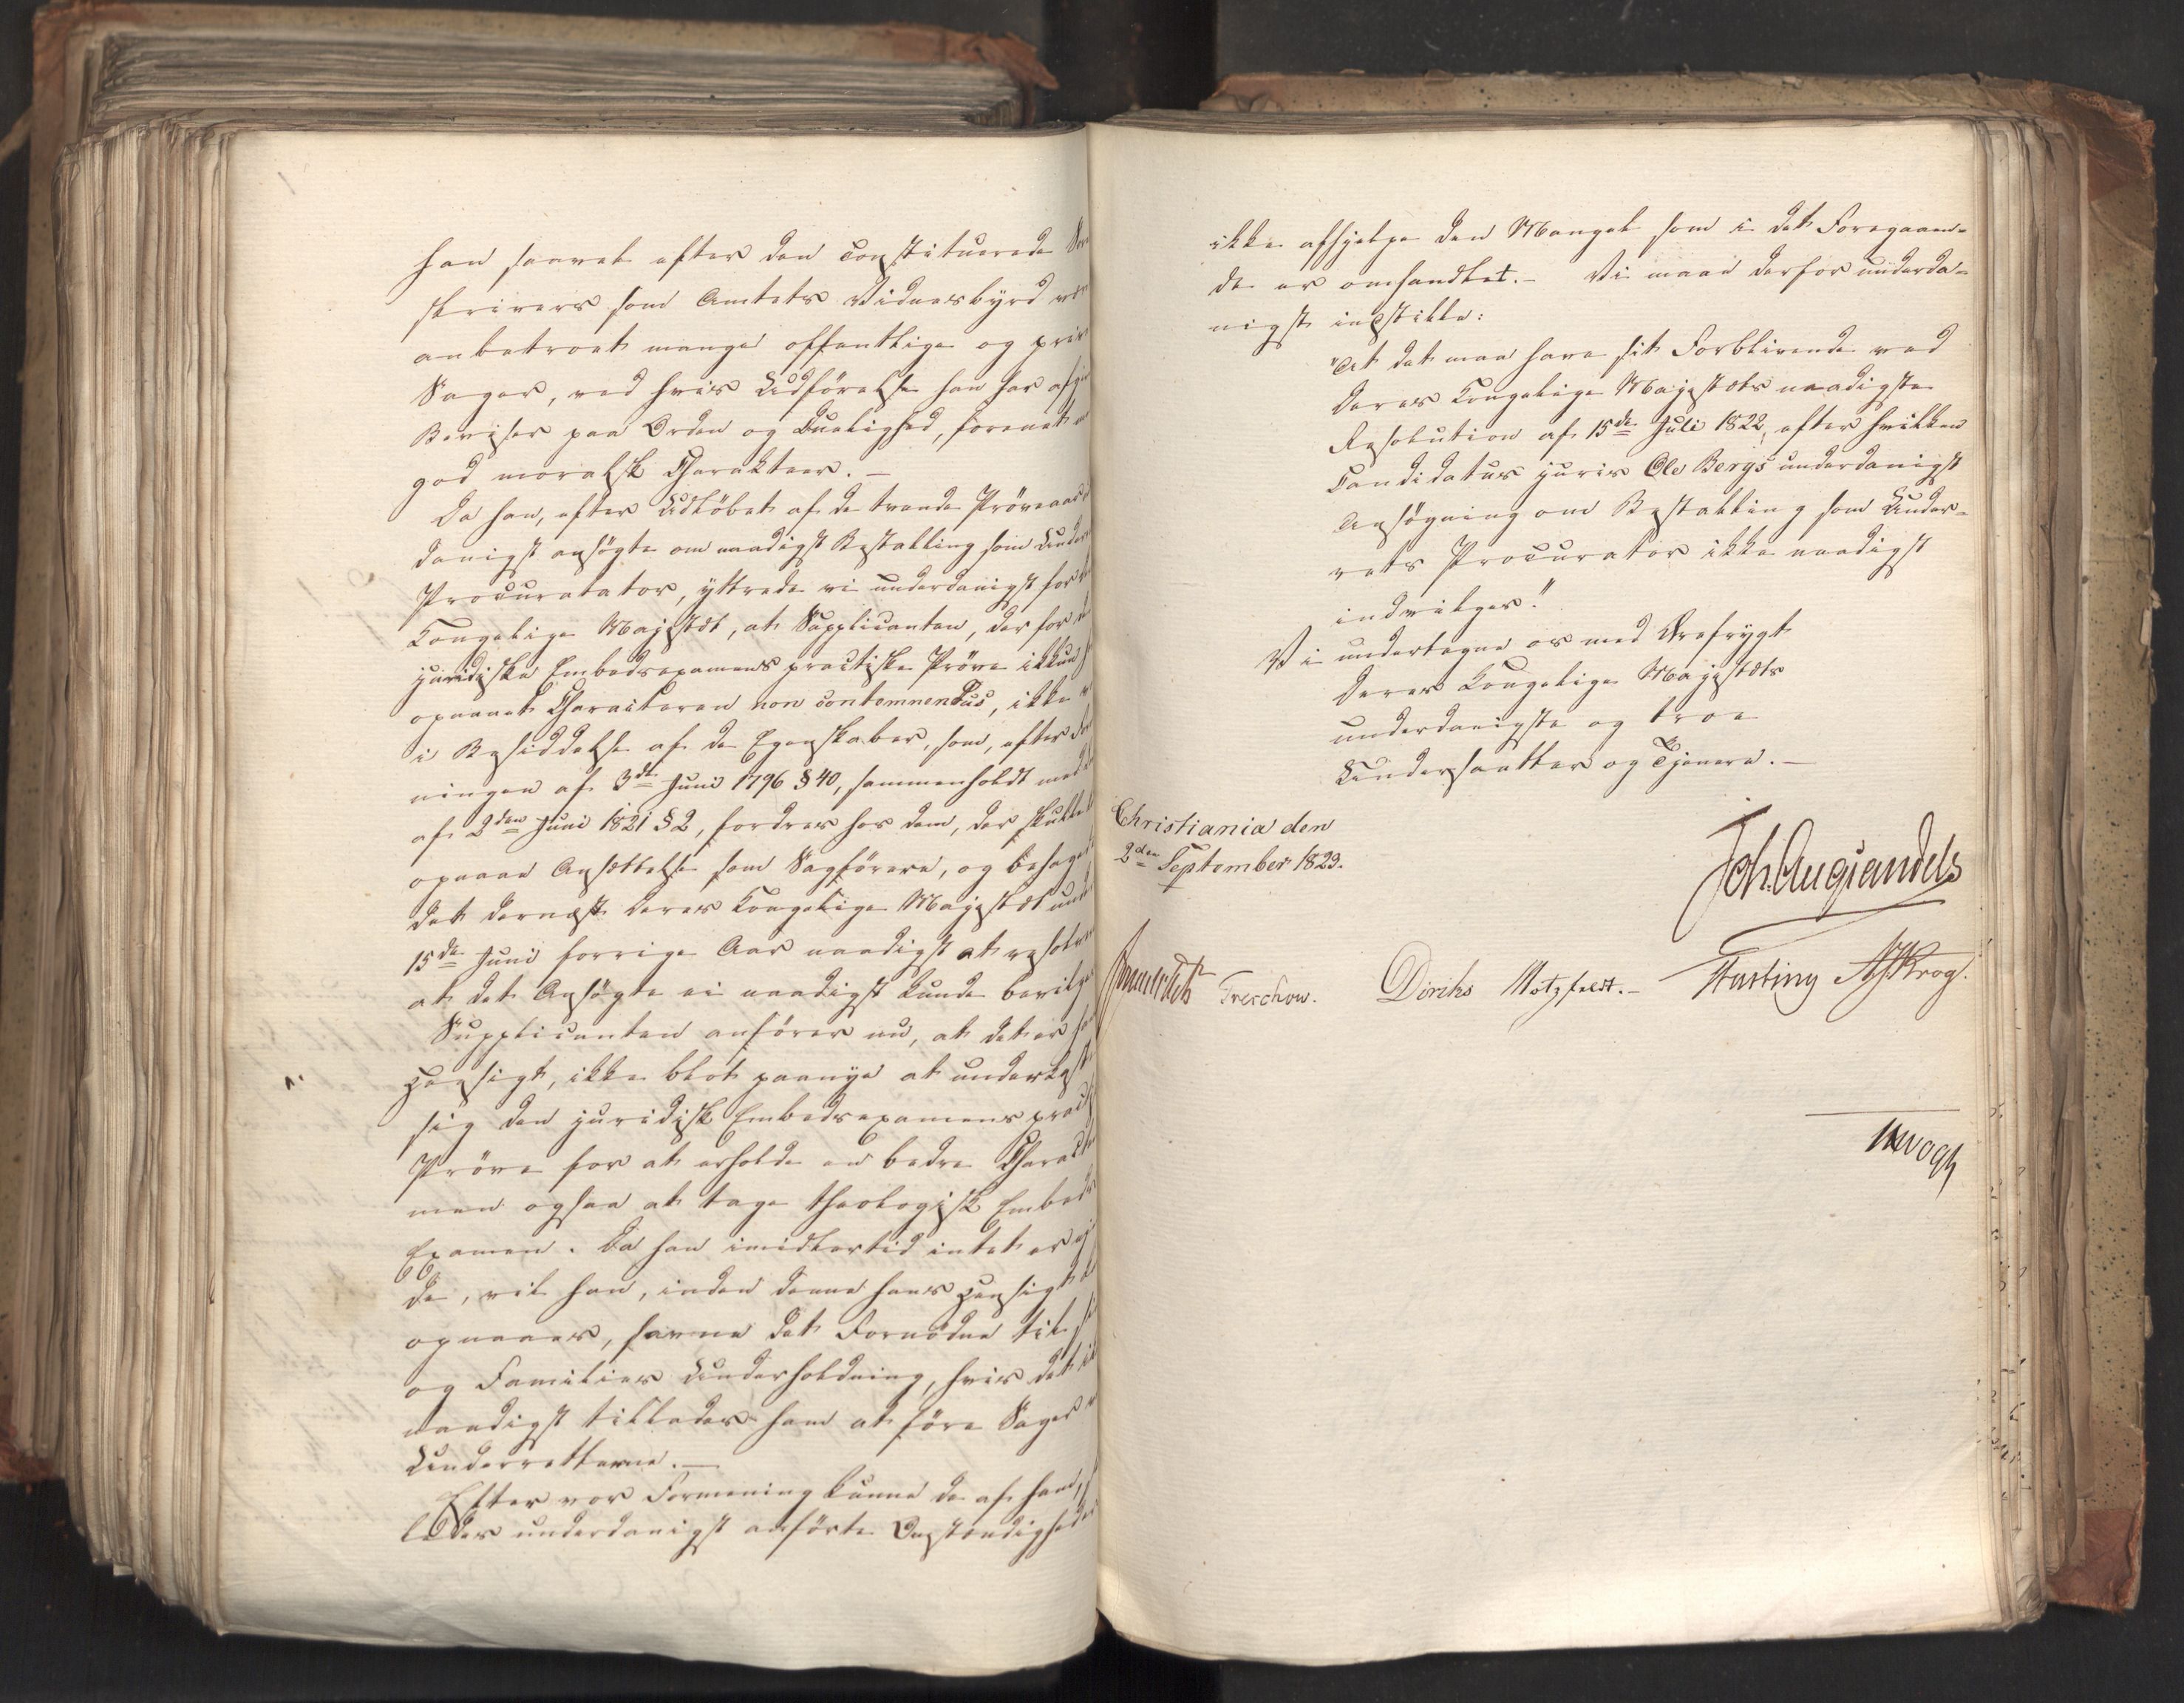 han saavel efter den constituerede
skrivers som Amtets Vidnesbyrd
anbetroet mange offentlige og
Sager, ved hvis Udførelse han har
Beviser paa Orden og Duelighed, forenet
god moralsk Charakteer. —
Da han, efter Udløbet af de tvende Prøveaar
danigst ansøgte om naadigst Bestalling som
Procuratator, yttrede vi underdanigst for
Kongelige Majestæt, at Supplicanten, der for
juridiske Embedsexamens practiske Prøve ikkun
opnaaet Characteren non contemnendus, ikke
i Besiddelse af de Egenskaber, som, efter
ningen af 3die Juni 1796 § 40, sammenholdt med
af 2den Juni 1821 § 2, fordres hos dem, der skulle
opnaae Ansættelse som Sagførere, og behagede
det dernæst Deres Kongelige Majestæt
15de Juni forrige Aar naadigst at resolvere
at det Ansøgte ei naadigst kunde
Supplicanten anfører nu, at det er
Hensigt, ikke blot paanye at underkaste
sig den juridisk Embedsexamens
Prøve for at erholde en bedre
men ogsaa at tage theologisk
Examen. Da han imidlertid intet er
de, vil han, inden denne hans Hensigt
opnaaes, savne det Fornødne til
og Families Underholdning, hvis det
naadigst tillades ham at føre Sager
Underretterne. —
Efter vor Formening kunne de af ham,
underdanigst anførte Omstændigheder
ikke afhjelpe den Mangel som i det Foregaaen-
de er omhandlet. — Vi maae derfor underda-
nigst indstille:
"At det maa have sit Forblivende ved
Deres Kongelige Majestæts naadigste
Resolution af 15de Juli 1822, efter hvilken
Candidatus juris Ole Bergs underdanigst
Ansøgning om Bestalling som Under-
rets Procurator ikke naadigst
indvilges."
Vi undertegne os med Ærefrygt
Deres Kongelige Majestæts
underdanigste og troe
Undersaatter og Tjenere. —
Christiania den
2den September 1823.
Joh. Aug Sandels
Sommerhielm Treschow. Diriks Motzfeldt. — Fasting Krog.
Vogt